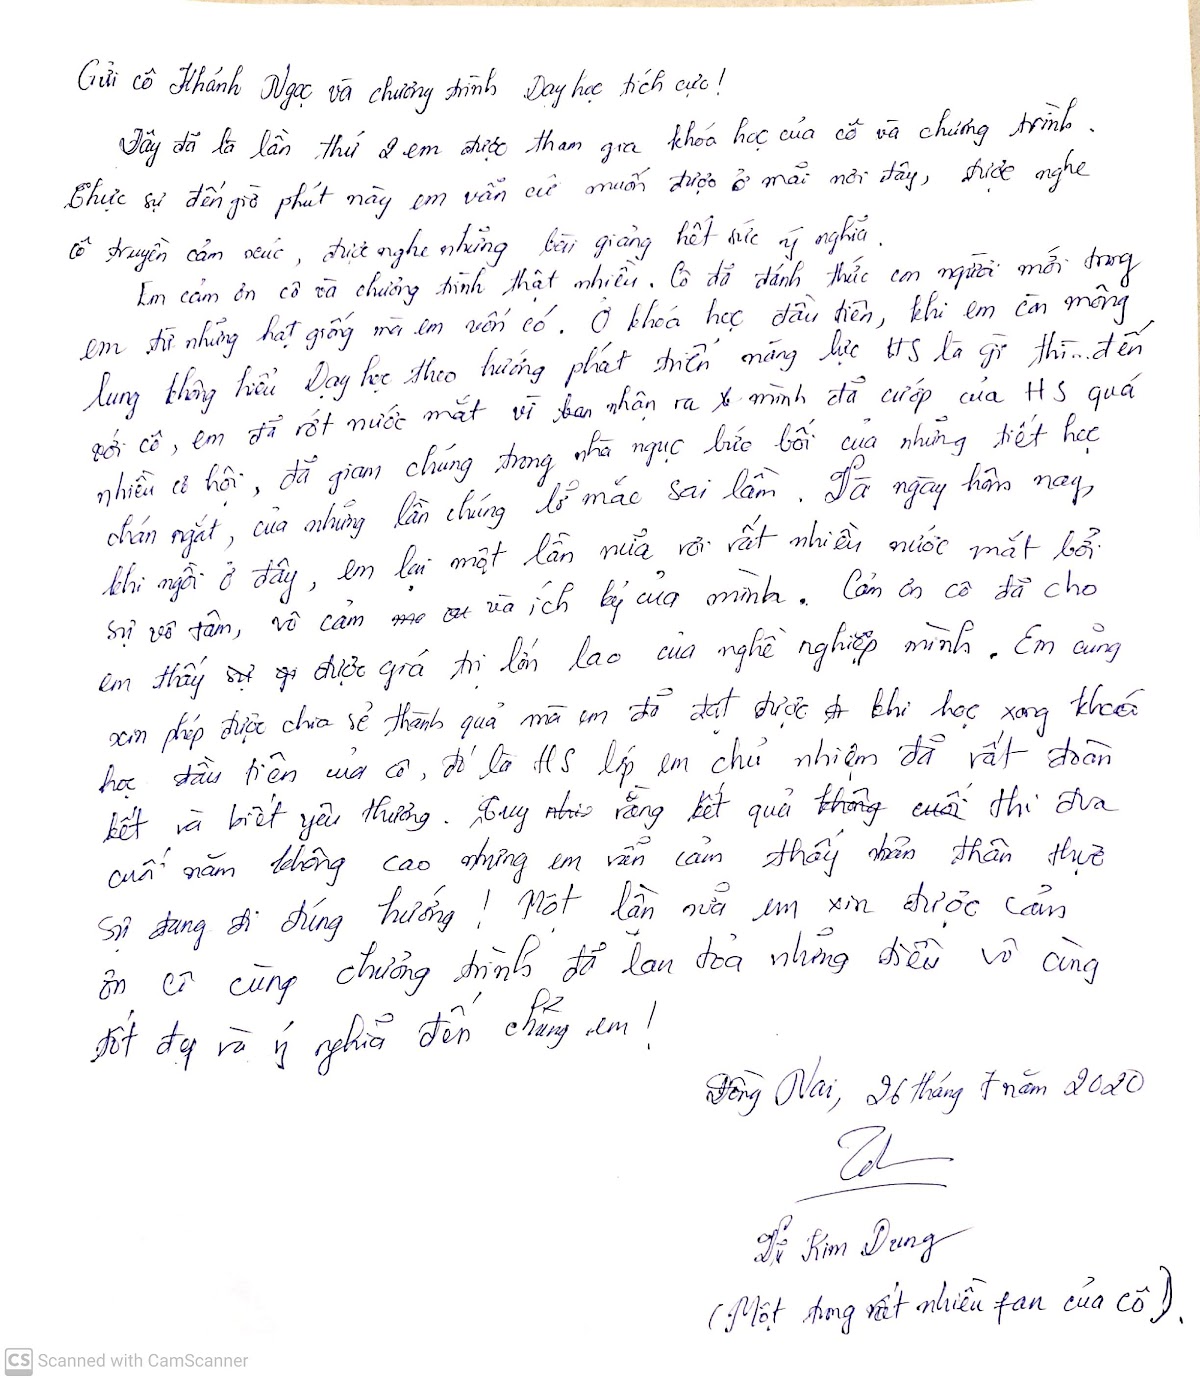 Gửi cô Khánh Ngọc và chương trình Dạy học tích cực!
Đây đã là lần thứ 2 em được tham gia khóa học của cô và chương trình.
Thực sự đến giờ phút này em vẫn cứ muốn được ở mãi nơi đây, được nghe
cô truyền cảm xúc, được nghe những bài giảng hết sức ý nghĩa.
Em cảm ơn cô và chương trình thật nhiều. Cô đã đánh thức con người mới trong
em từ những hạt giống mà em vốn có. Ở khóa học đầu tiên, khi em còn mông
lung không hiểu Dạy học theo hướng phát triển năng lực HS là gì thì... đến
với cô, em đã rớt nước mắt vì nhận ra mình đã cướp của HS quá
nhiều cơ hội, đã giam chúng trong nhà ngục bức bối của những tiết học
chán ngắt, của những lần chúng lỡ mắc sai lầm. Và ngày hôm nay,
khi ngồi ở đây, em lại một lần nữa rơi rất nhiều nước mắt bởi
sự vô tâm, vô cảm và ích kỷ của mình. Cảm ơn cô đã cho
em thấy được giá trị lớn lao của nghề nghiệp mình. Em cũng
xin phép được chia sẻ thành quả mà em đã đạt được khi học xong khoá
học đầu tiên của cô, đó là HS lớp em chủ nhiệm đã rất đoàn
kết và biết yêu thương. Tuy rằng kết quả thi đua
cuối năm không cao nhưng em vẫn cảm thấy bản thân thực
sự đang đi đúng hướng! Một lần nữa em xin được cảm
ơn cô cùng chương trình đã lan toả những điều vô cùng
tốt đẹp và ý nghĩa đến chúng em!
Đồng Nai, 26 tháng 7 năm 2020
Kim Dung
(Một trong rất nhiều fan của cô).
CS Scanned with CamScanner